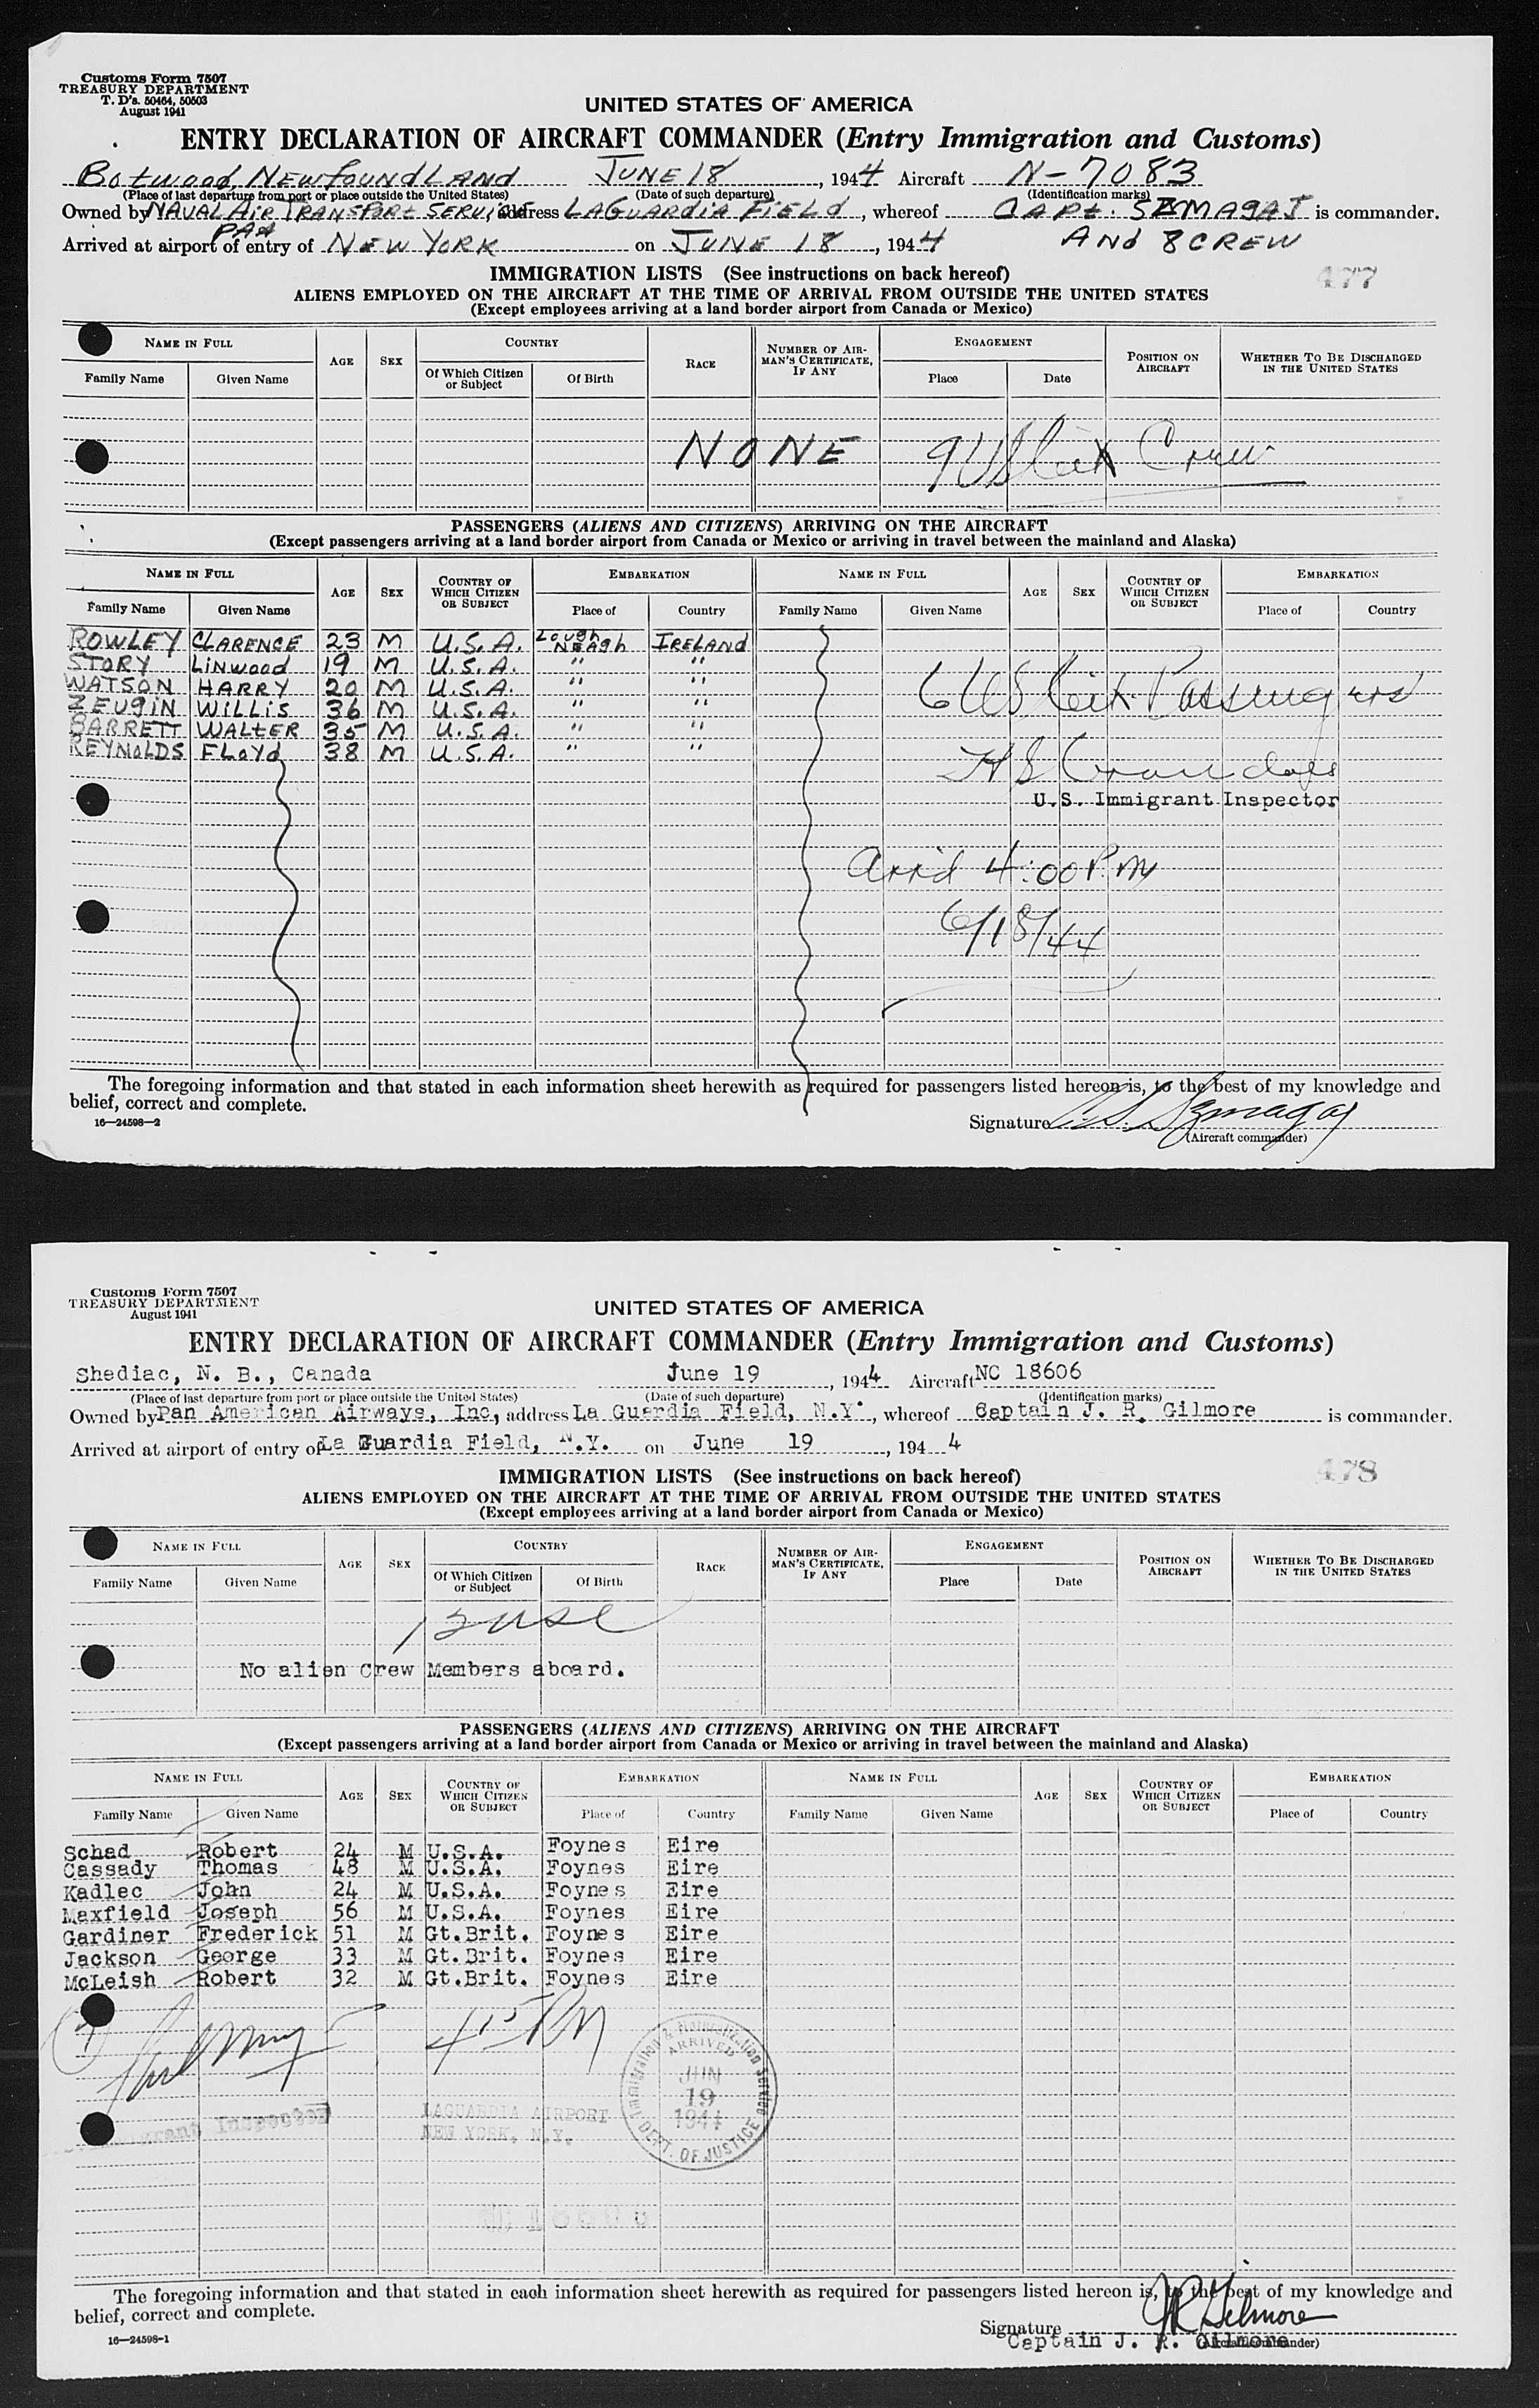 Customs Form 7507
TREASURY DEPARTMENT
T. D's. 50464, 50503
August 1941
UNITED STATES OF AMERICA
ENTRY DECLARATION OF AIRCRAFT COMMANDER (Entry Immigration and Customs)
Botwood, NEWfoundLAND JUNE 18, 1944 Aircraft N-7083
(Place of last departure from port or place outside the United States) (Date of such departure) (Identification marks)
Owned by NAVAL AIR TRANSPORT SERVICE address LAGUARDIA FIELD, whereof CAPt. SZMAGAJ is commander.
PAA
Arrived at airport of entry of NEW YORK on JUNE 18, 1944 ANd 8 CREW
IMMIGRATION LISTS (See instructions on back hereof) 477
ALIENS EMPLOYED ON THE AIRCRAFT AT THE TIME OF ARRIVAL FROM OUTSIDE THE UNITED STATES
(Except employees arriving at a land border airport from Canada or Mexico)
NAME IN FULL AGE SEX COUNTRY RACE NUMBER OF AIRMAN'S CERTIFICATE, IF ANY ENGAGEMENT POSITION ON AIRCRAFT WHETHER TO BE DISCHARGED IN THE UNITED STATES
Family Name Given Name Of Which Citizen or Subject Of Birth Place Date
NONE 9 US Cit Crew
PASSENGERS (ALIENS AND CITIZENS) ARRIVING ON THE AIRCRAFT
(Except passengers arriving at a land border airport from Canada or Mexico or arriving in travel between the mainland and Alaska)
NAME IN FULL AGE SEX COUNTRY OF WHICH CITIZEN OR SUBJECT EMBARKATION NAME IN FULL AGE SEX COUNTRY OF WHICH CITIZEN OR SUBJECT EMBARKATION
Family Name Given Name Place of Country Family Name Given Name Place of Country
ROWLEY CLARENCE 23 M U.S.A. Lough NEAgh IRELANd
STORY LINwood 19 M U.S.A. " "
WATSON HARRY 20 M U.S.A. " "
ZEUGIN WILLIS 36 M U.S.A. " "
BARRETT WALtER 35 M U.S.A. " "
REYNOLDS FLOYd 38 M U.S.A. " "
6 US Cit Passengers
U.S. Immigrant Inspector
Arr'd 4:00 P.M
6/18/44
The foregoing information and that stated in each information sheet herewith as required for passengers listed hereon is, to the best of my knowledge and
belief, correct and complete.
16—24598-2
Signature Szmagaj
(Aircraft commander)
Customs Form 7507
TREASURY DEPARTMENT
August 1941
UNITED STATES OF AMERICA
ENTRY DECLARATION OF AIRCRAFT COMMANDER (Entry Immigration and Customs)
Shediac, N. B., Canada June 19, 1944 Aircraft NC 18606
(Place of last departure from port or place outside the United States) (Date of such departure) (Identification marks)
Owned by Pan American Airways, Inc, address La Guardia Field, N.Y., whereof Captain J. R. Gilmore is commander.
Arrived at airport of entry of La Guardia Field, N.Y. on June 19, 1944
IMMIGRATION LISTS (See instructions on back hereof) 478
ALIENS EMPLOYED ON THE AIRCRAFT AT THE TIME OF ARRIVAL FROM OUTSIDE THE UNITED STATES
(Except employees arriving at a land border airport from Canada or Mexico)
NAME IN FULL AGE SEX COUNTRY RACE NUMBER OF AIRMAN'S CERTIFICATE, IF ANY ENGAGEMENT POSITION ON AIRCRAFT WHETHER TO BE DISCHARGED IN THE UNITED STATES
Family Name Given Name Of Which Citizen or Subject Of Birth Place Date
No alien Crew Members aboard.
PASSENGERS (ALIENS AND CITIZENS) ARRIVING ON THE AIRCRAFT
(Except passengers arriving at a land border airport from Canada or Mexico or arriving in travel between the mainland and Alaska)
NAME IN FULL AGE SEX COUNTRY OF WHICH CITIZEN OR SUBJECT EMBARKATION NAME IN FULL AGE SEX COUNTRY OF WHICH CITIZEN OR SUBJECT EMBARKATION
Family Name Given Name Place of Country Family Name Given Name Place of Country
Schad Robert 24 M U.S.A. Foynes Eire
Cassady Thomas 48 M U.S.A. Foynes Eire
Kadlec John 24 M U.S.A. Foynes Eire
Maxfield Joseph 56 M U.S.A. Foynes Eire
Gardiner Frederick 51 M Gt.Brit. Foynes Eire
Jackson George 33 M Gt.Brit. Foynes Eire
McLeish Robert 32 M Gt.Brit. Foynes Eire
7
4 15 PM
Immigration & Naturalization Service
ARRIVED
JUN
19
1944
DEPT. OF JUSTICE
Immigrant Inspector
LAGUARDIA AIRPORT
NEW YORK, N.Y.
The foregoing information and that stated in each information sheet herewith as required for passengers listed hereon is, to the best of my knowledge and
belief, correct and complete.
16—24598-1
Signature JR Gilmore
Captain J. R. Gilmore
(Aircraft commander)